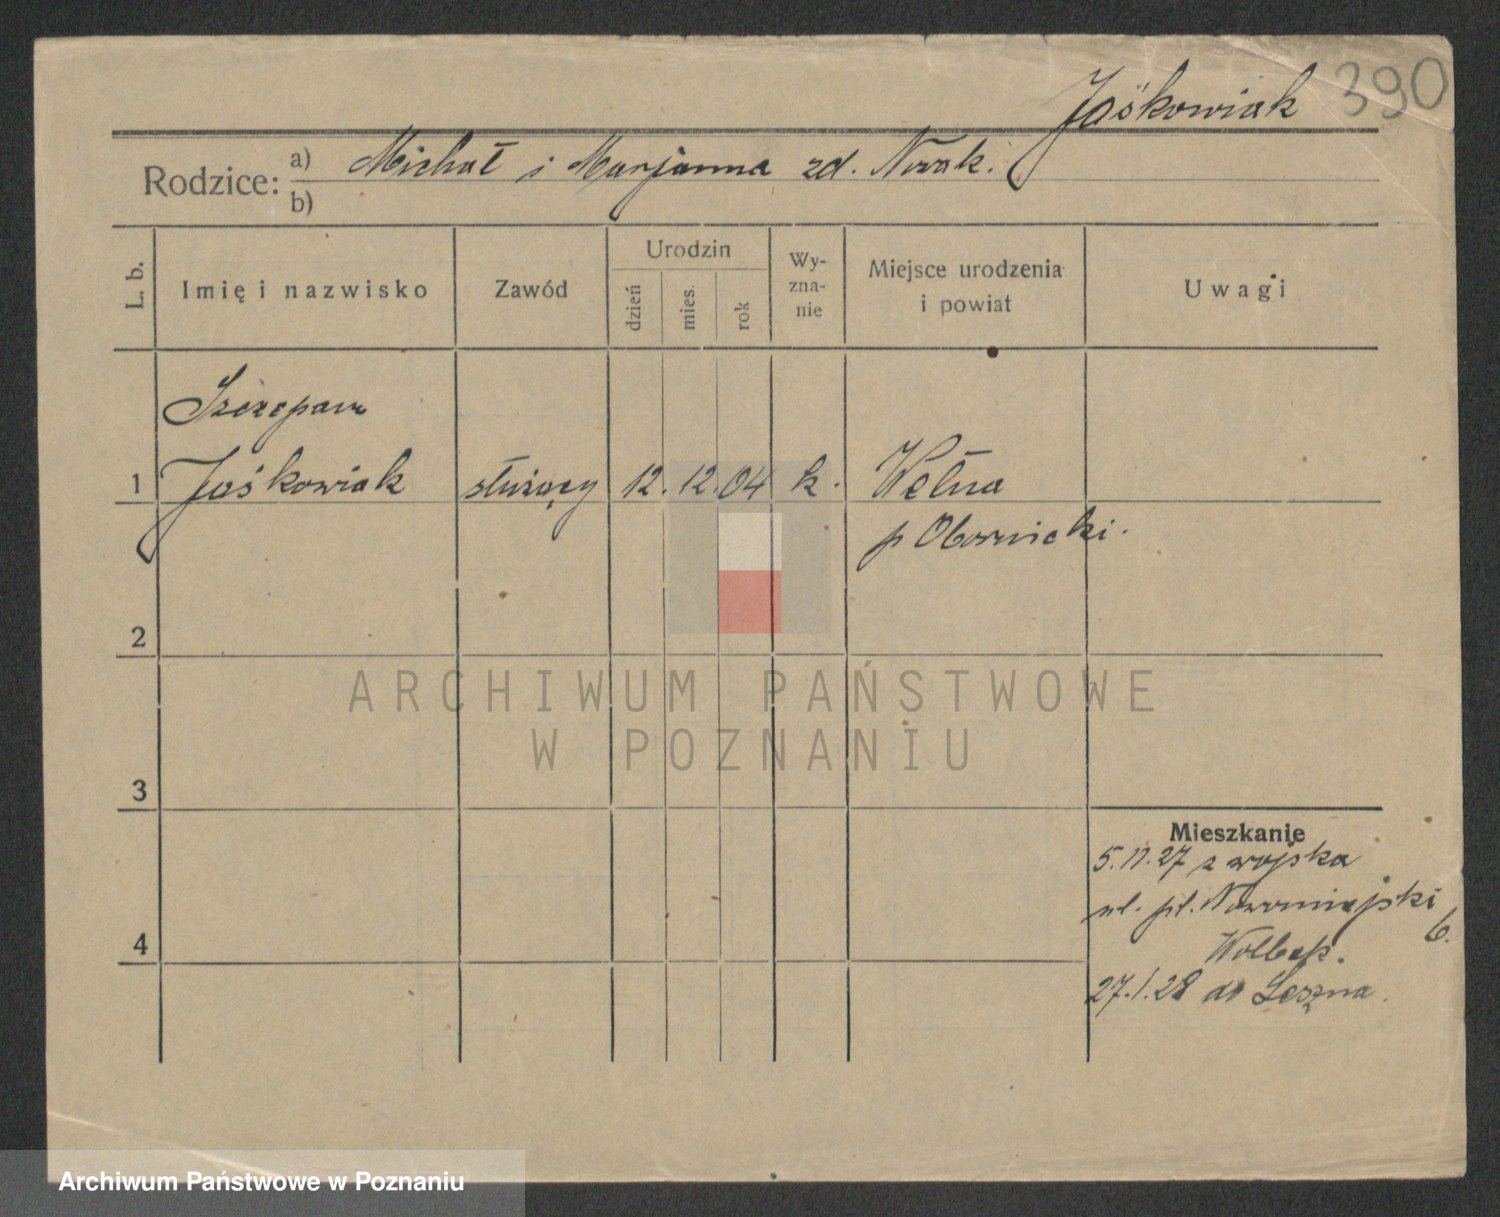 390
Jaśkowiak
Rodzice: a) Michał i Marjanna zd. Nowak.
b)
L. b.
Imię i nazwisko
Zawód
Urodzin
dzień
mies.
rok
Wy-
zna-
nie
Miejsce urodzenia
i powiat
Uwagi
Szczepan
1 Jaśkowiak służący 12. 12. 04 k. Wełna
p Obornicki.
2
3
4
Mieszkanie
5.11.27 z wojska
ul. pl. Nowomiejski
6.
27.1.28 do Leszna.
ARCHIWUM PAŃSTWOWE
W POZNANIU
Archiwum Państwowe w Poznaniu